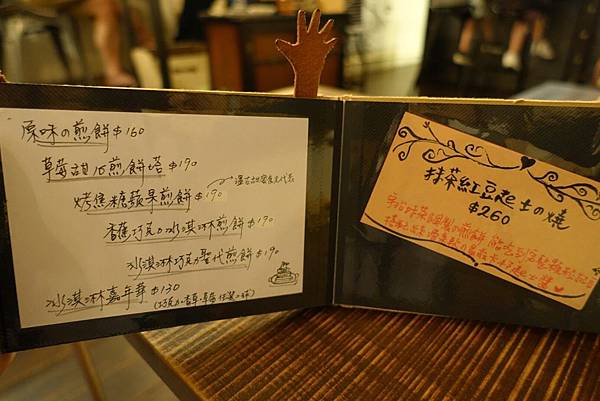 原味の煎餅 $160
草莓甜心煎餅塔 $190
烤焦糖蘋果煎餅 $190
香蕉巧克力冰淇淋煎餅 $190
冰淇淋巧克力聖代煎餅 $190
冰淇淋嘉年華 $130
(巧克力.香草.草莓 任選2球)
抹茶紅豆起士の燒
$260